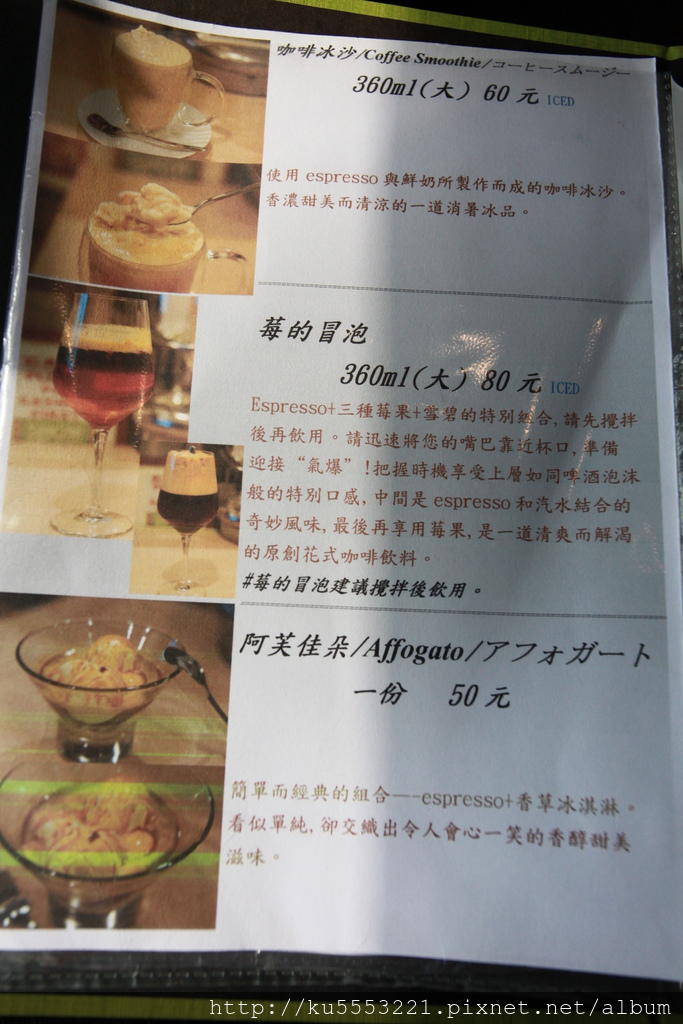 咖啡冰沙/Coffee Smoothie/コーヒースムージー
360ml(大) 60 元 ICED
使用 espresso 與鮮奶所製作而成的咖啡冰沙。
香濃甜美而清涼的一道消暑冰品。
莓的冒泡
360ml(大) 80 元 ICED
Espresso+三種莓果+雪碧的特別組合,請先攪拌
後再飲用。請迅速將您的嘴巴靠近杯口,準備
迎接“氣爆”!把握時機享受上層如同啤酒泡沫
般的特別口感,中間是 espresso 和汽水結合的
奇妙風味,最後再享用莓果,是一道清爽而解渴
的原創花式咖啡飲料。
#莓的冒泡建議攪拌後飲用。
阿芙佳朵/Affogato/アフォガート
一份 50 元
簡單而經典的組合——espresso+香草冰淇淋。
看似單純,卻交織出令人會心一笑的香醇甜美
滋味。
http://ku5553221.pixnet.net/album